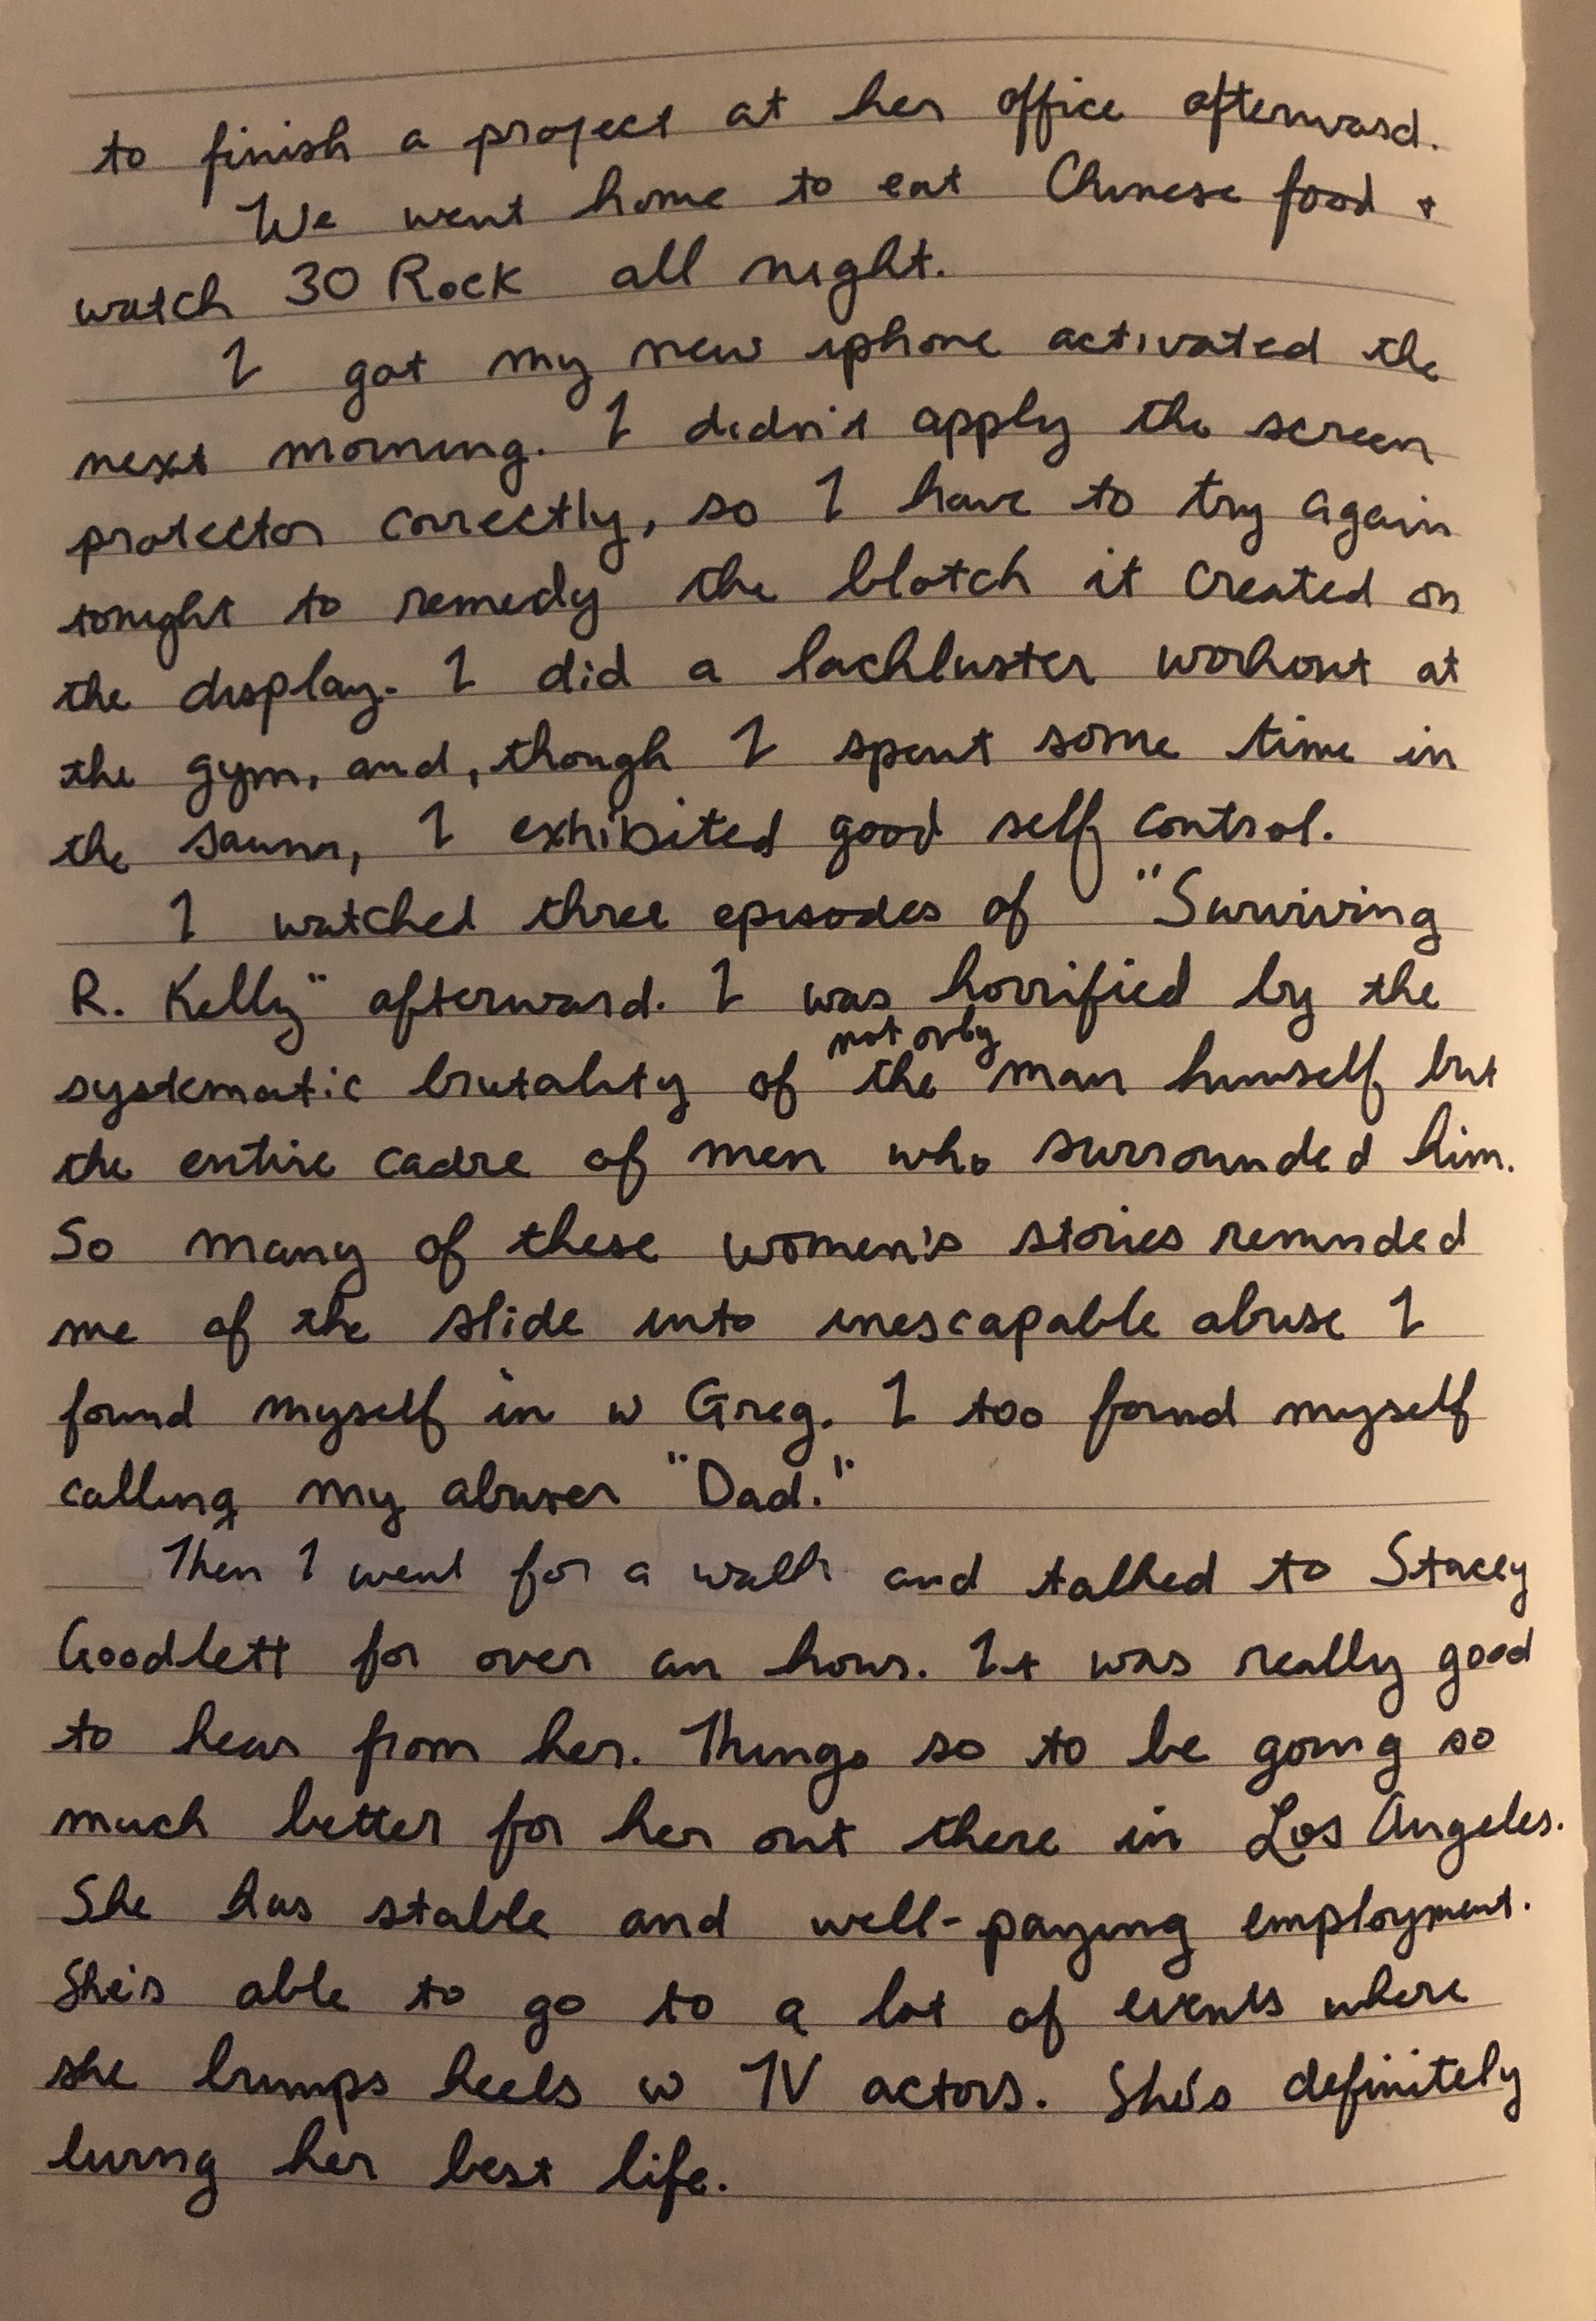 to finish a project at her office afterward.
We went home to eat Chinese food +
watch 30 Rock all night.
I got my new iphone activated the
next morning. I didn't apply the screen
protector correctly, so I have to try again
tonight to remedy the blotch it created on
the display. I did a lackluster workout at
the gym, and, though I spent some time in
the sauna, I exhibited good self control.
I watched three episodes of "Surviving
R. Kelly" afterward. I was horrified by the
not only
systematic brutality of the man himself but
the entire cadre of men who surrounded him.
So many of these women's stories reminded
me of the slide into inescapable abuse I
found myself in w Greg. I too found myself
calling my abuser "Dad."
Then I went for a walk and talked to Stacey
Goodlett for over an hour. It was really good
to hear from her. Things so to be going so
much better for her out there in Los Angeles.
She has stable and well-paying employment.
She's able to go to a lot of events where
she bumps heels w TV actors. She's definitely
living her best life.